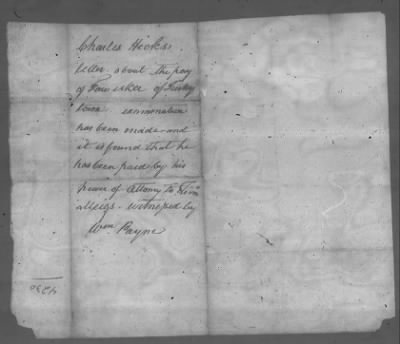 Charles Hicks
letter about the pay
of of Turkey
Town examination
has been made and
it is found that he
has been paid by his
power of Attorny to
Meigs - witnessed by
Wm Payne